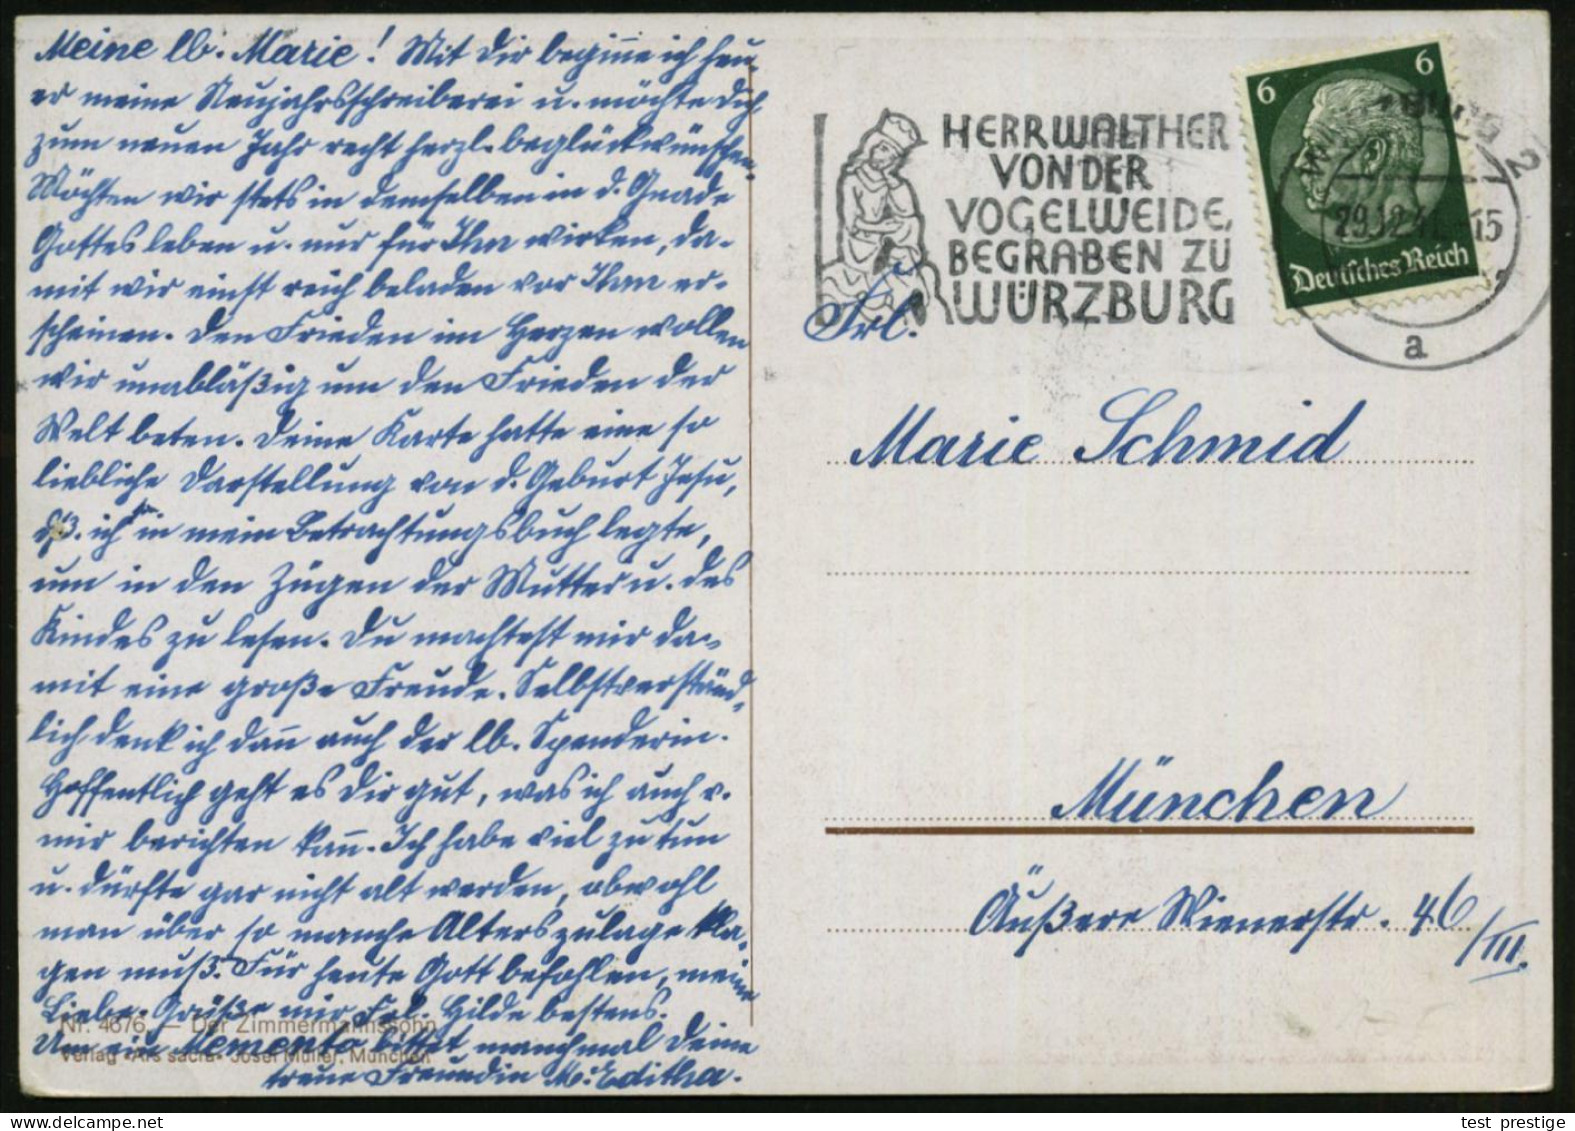 Meine lb. Marie! Mit Dir beginne ich heu-
er meine Neujahrsschreiberei u. möchte Dich
zum neuen Jahr recht herzl. beglückwünschen.
Möchten wir stets in demselben in d. Gnade
Gottes leben u. nur für Ihn wirken, da-
mit wir einst reich beladen vor Ihm er-
scheinen. Den Frieden im Herzen wollen
wir unabläßig um den Frieden der
Welt beten. Deine Karte hatte eine so
liebliche Darstellung von d. Geburt Jesu,
dß. ich sie in mein Betrachtungsbuch legte,
um in den Zügen der Mutter u. des
Kindes zu lesen. Du machtest mir da-
mit eine große Freude. Selbstverständ-
lich denk ich dann auch der lb. Spenderin.
Hoffentlich geht es Dir gut, was ich auch v.
mir berichten kann. Ich habe viel zu tun
u. dürfte gar nicht alt werden, obwohl
man über so manche Alterszulage kla-
gen muß. Für heute Gott befohlen, meine
Liebe. Grüße mir Frl. Hilde bestens.
Um ein Memento bittet manchmal Deine
treue Freundin M. Editha.
Nr. 4676 — Der Zimmermannssohn
Verlag «Ars sacra» Josef Müller, München
HERR WALTHER
VON DER
VOGELWEIDE,
BEGRABEN ZU
WÜRZBURG
6 6
Deutsches Reich
2
29.12.41.-15
a
Frl.
Marie Schmid
München
Äußere Wienerstr. 46/III.
test_prestige